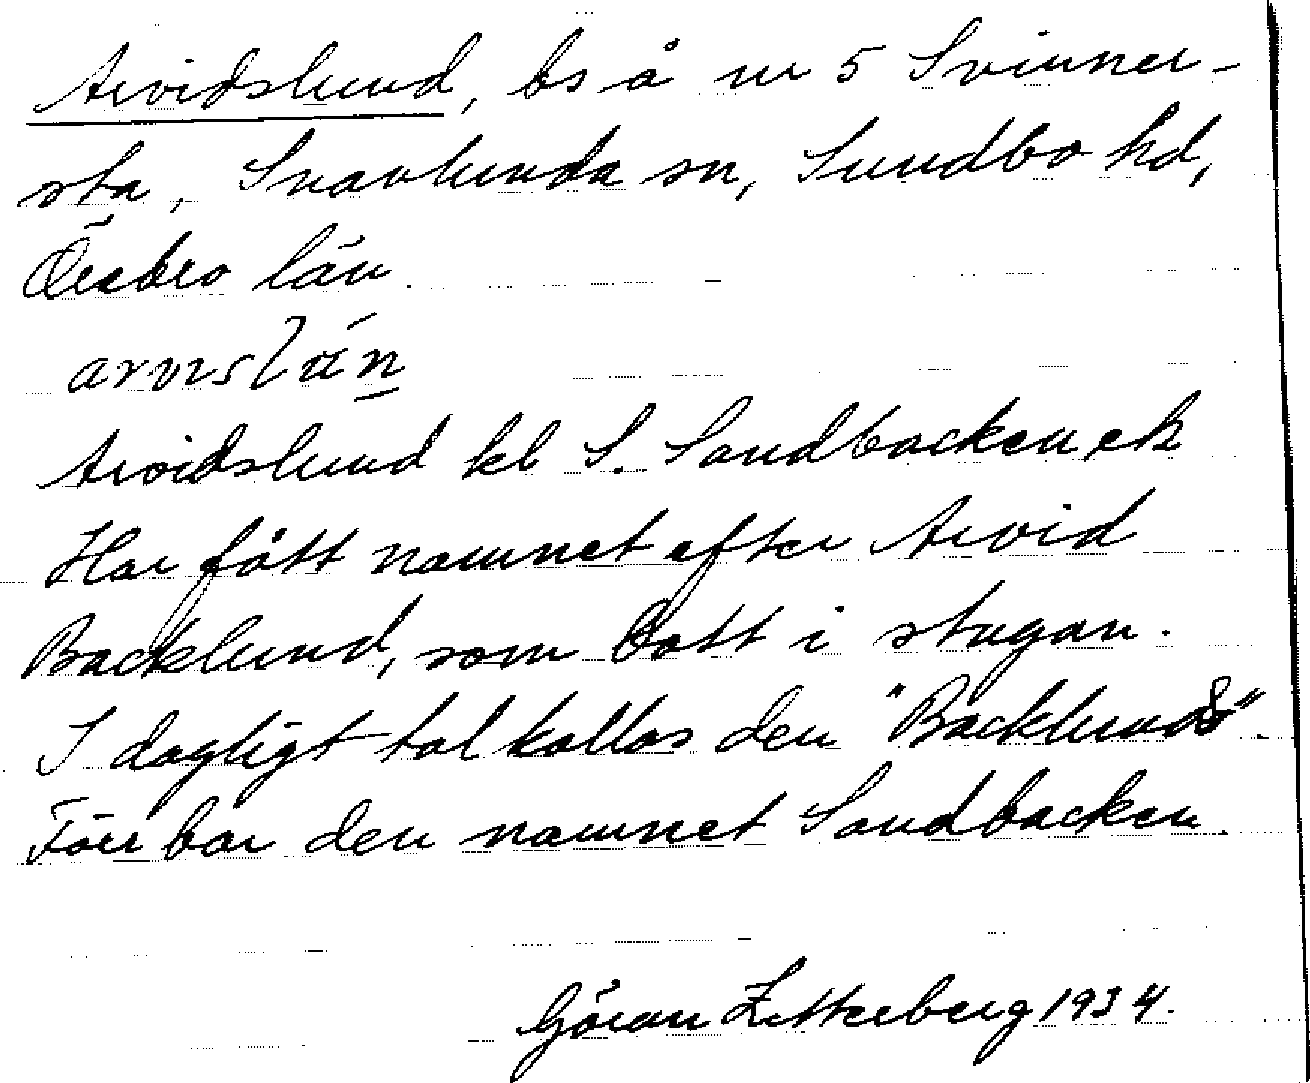 Arvidslund, bs å nr 5 Svinner-
sta, Snavlunda sn, Sundbo hd,
Örebro län.
Arvidslund kl S. Sandbacken, ek
Har fått namnet efter Arvid
Backlund, som bott i stugan.
I dagligt tal kallas den "Backlunds".
Förr bar den namnet Sandbacken.
Göran Zetterberg 1934.